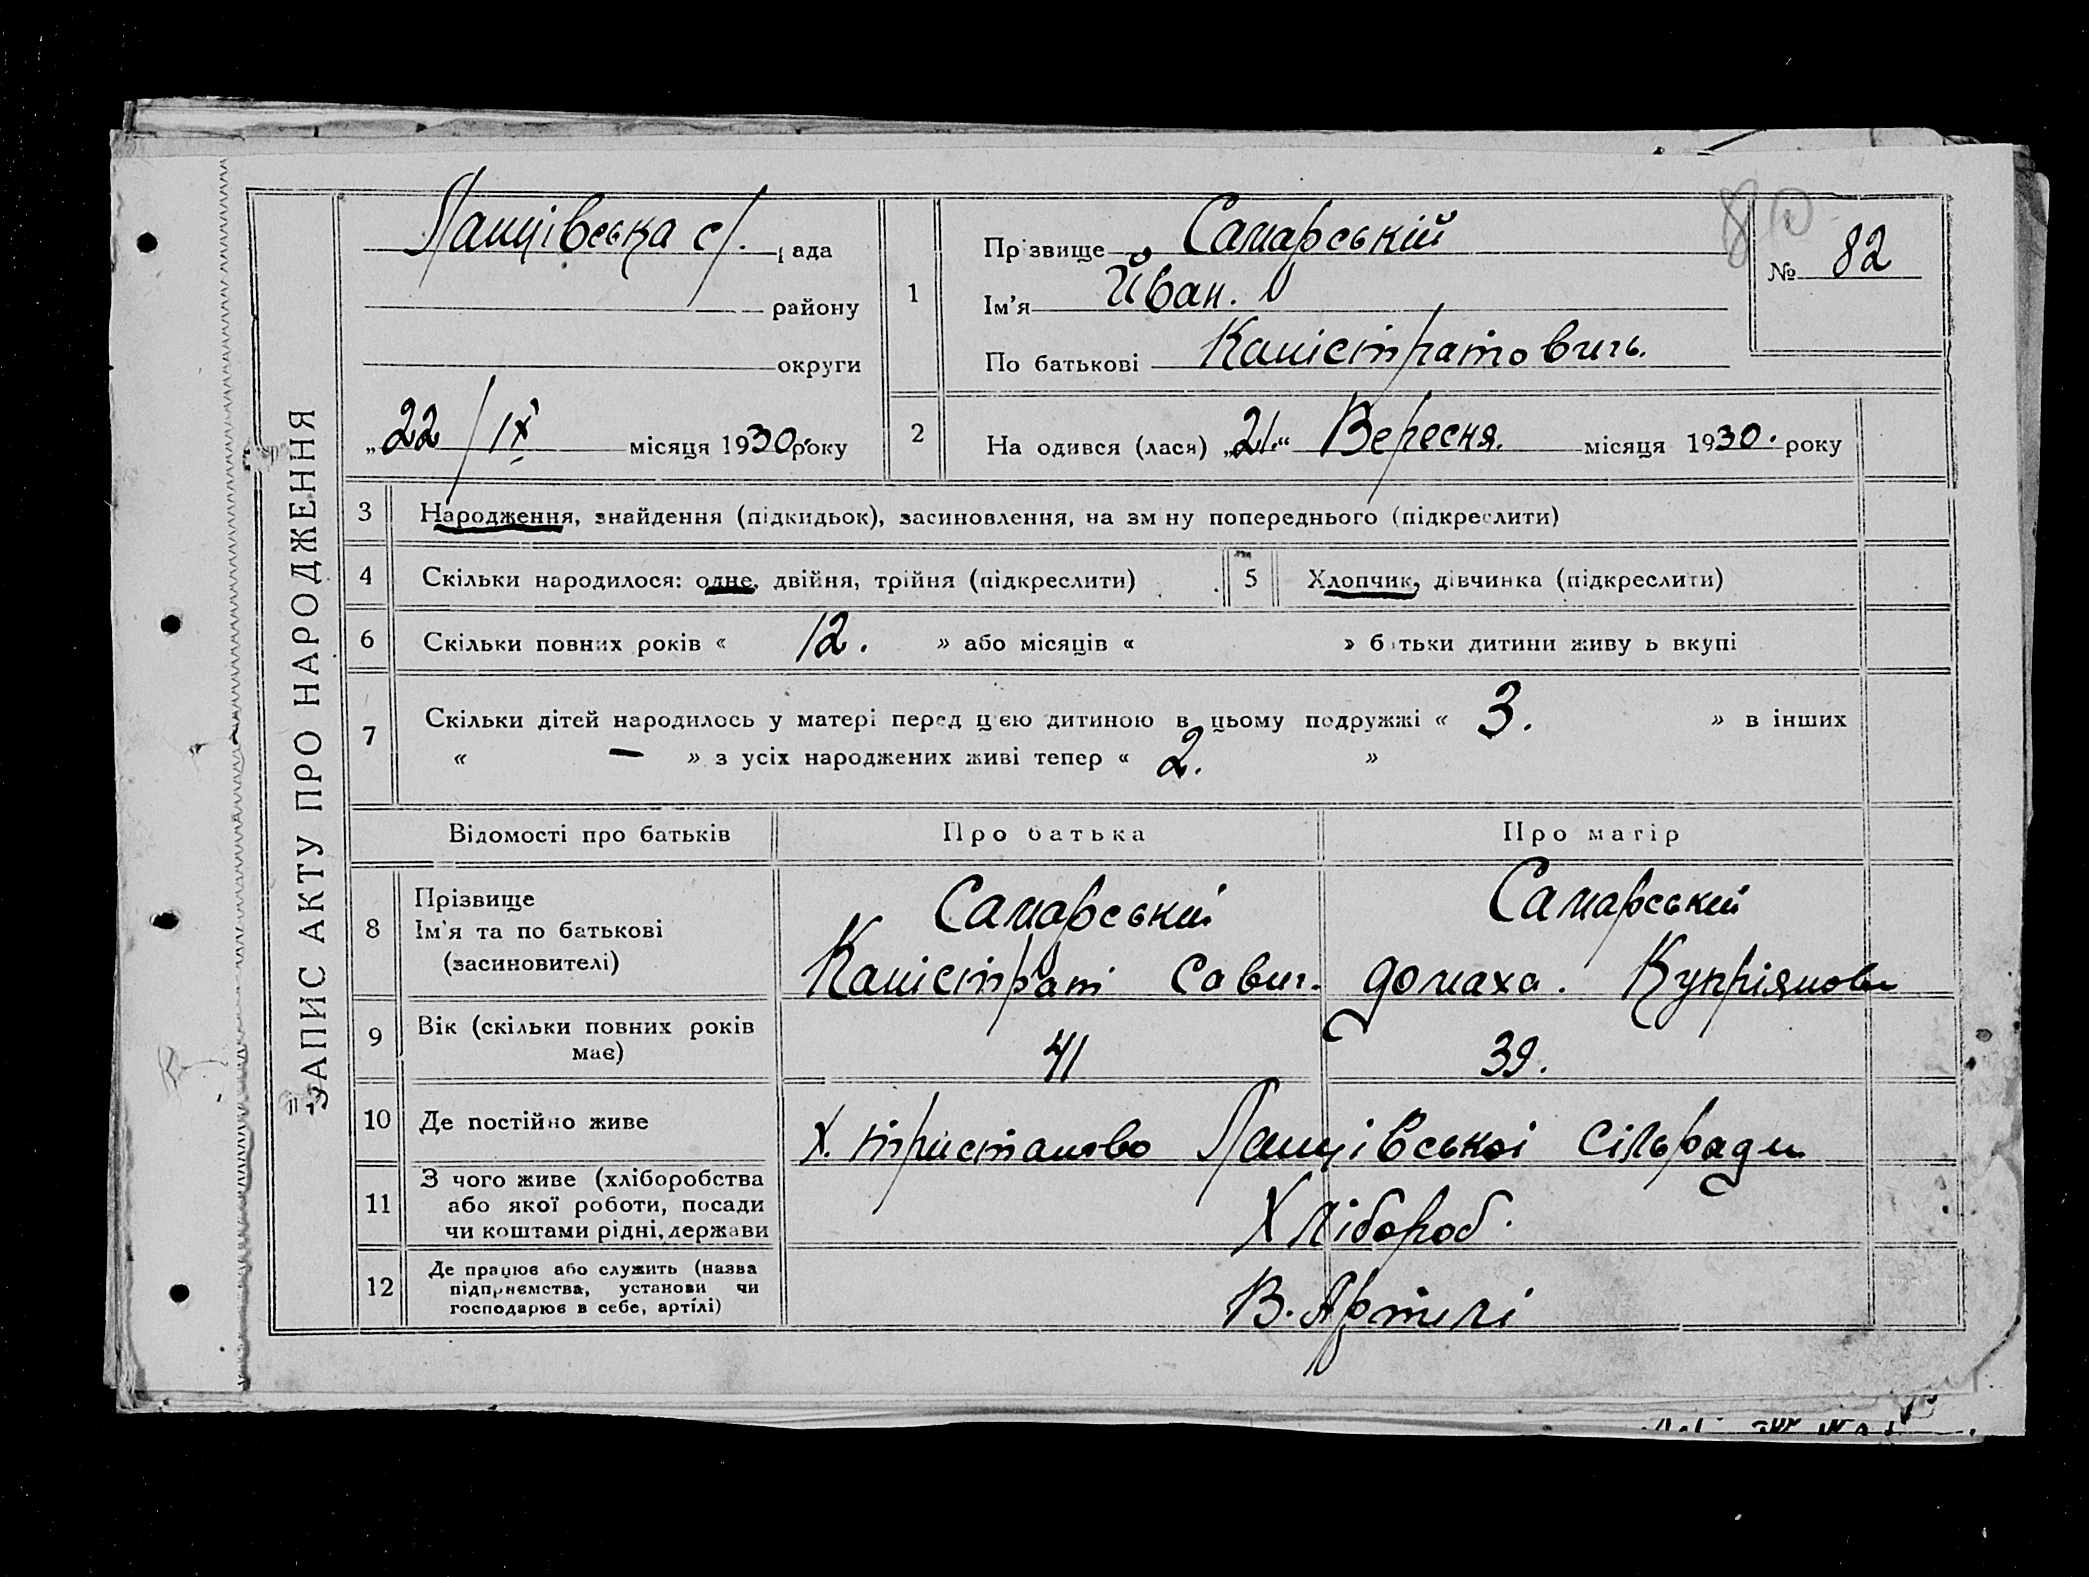 ЗАПИС АКТУ ПРО НАРОДЖЕННЯ
Лащівська с/. рада
району
округи
„22/IX місяця 1930 року
1
Прізвище Самарській
Ім'я Йван.
По батькові Калістратовичь.
№ 82
2 На одився (лася) „21.“ Вересня. місяця 1930. року
3 Народження, знайдення (підкидьок), засиновлення, на зм ну попереднього (підкреслити)
4 Скільки народилося: одне, двійня, трійня (підкреслити)
5 Хлопчик, дівчинка (підкреслити)
6 Скільки повних років « 12. » або місяців « » б тьки дитини живу ь вкупі
7 Скільки дітей народилось у матері перед цією дитиною в цьому подружжі « 3. » в інших
« — » з усіх народжених живі тепер « 2. »
Відомості про батьків Про батька Про матір
8 Прізвище
Ім'я та по батькові
(засиновителі)
Самарській
Калістрат Савич.
Самарській
Домаха. Купріянови
9 Вік (скільки повних років
має)
41 39.
10 Де постійно живе
Х. Лащівської Сільради
11 З чого живе (хліборобства
або якої роботи, посади
чи коштами рідні, держави
Хлібороб.
12 Де працює або служить (назва
підприємства, установи чи
господарює в себе, артілі)
В. Артилі